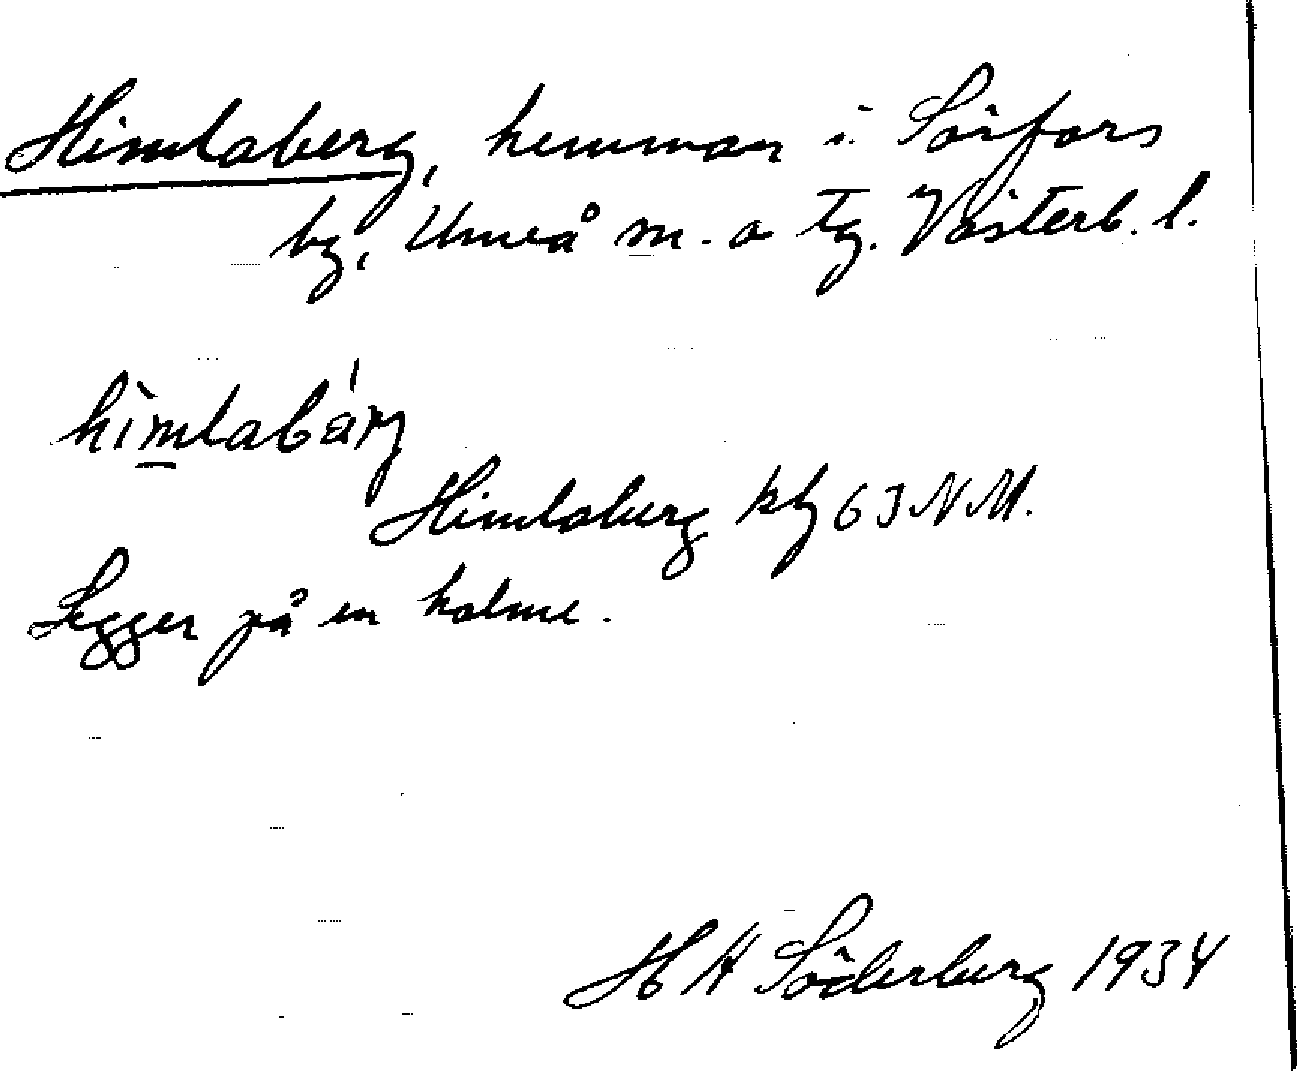 Himlaberg, hemman i Sörfors
by, Umeå m. o tg. Västerb. l.
himlabárj
Himlaberg kbg 63 N M.
Ligger på en holme.
H A Söderberg 1934